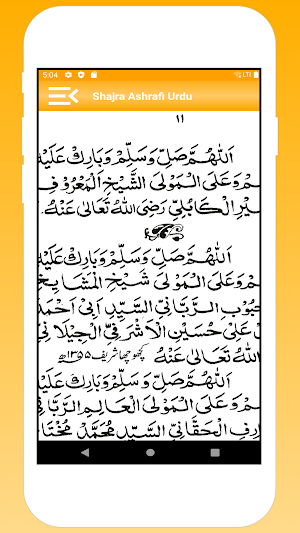 5:04
LTE
Shajra Ashrafi Urdu
۱۱
اَللّٰهُمَّ صَلِّ وَسَلِّمْ وَبَارِكْ عَلَيْهِ
مْ وَعَلَى الْمَوْلَى الشَّيْخِ الْمَعْرُوْفِ
يْرِ الْكَابُلِيِّ رَضِيَ اللّٰهُ تَعَالٰى عَنْهُ
اَللّٰهُمَّ صَلِّ وَسَلِّمْ وَبَارِكْ عَلَيْهِ
مْ وَعَلَى الْمَوْلَى شَيْخِ الْمَشَايِخِ
بُوْبِ الرَّبَّانِيِّ السَّيِّدِ اَبِيْ اَحْمَدَ
عَلِيْ حُسَيْنِ الْاَشْرَفِيِّ الْجِيْلَانِيِّ
اللّٰهُ تَعَالٰى عَنْهُ کچھوچھا شریف ۱۳۵۵ھ
اَللّٰهُمَّ صَلِّ وَسَلِّمْ وَبَارِكْ عَلَيْهِ
مْ وَعَلَى الْمَوْلَى الْعَالِمِ الرَّبَّانِيِّ
رِفِ الْحَقَّانِيِّ السَّيِّدِ مُحَمَّدْ مُخْتَا